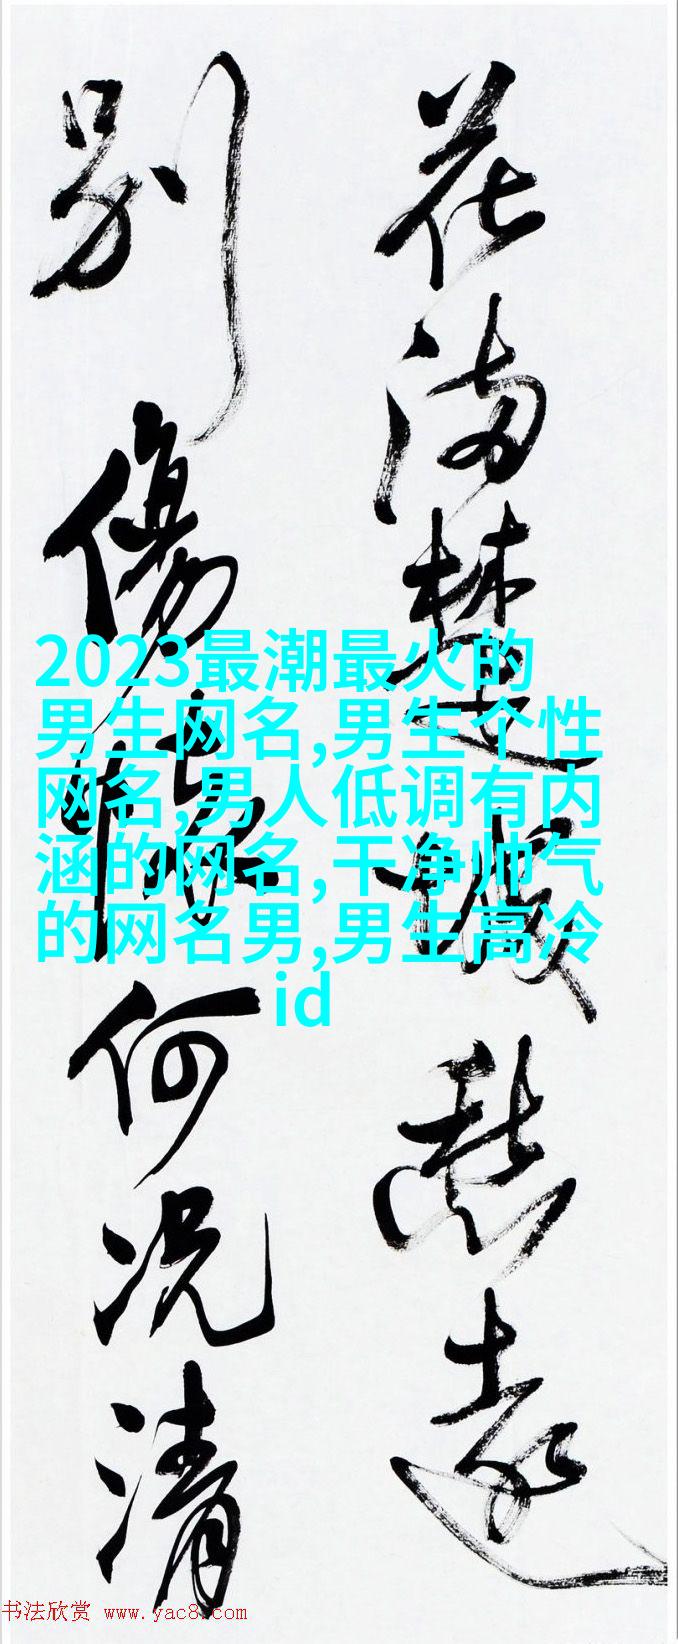 花满楚城愁遠
别傷懷何况清
2023最潮最火的
男生网名,男生个性
网名,男人低调有内
涵的网名,干净帅气
的网名男,男生高冷
id
书法欣赏 www.yac8.com